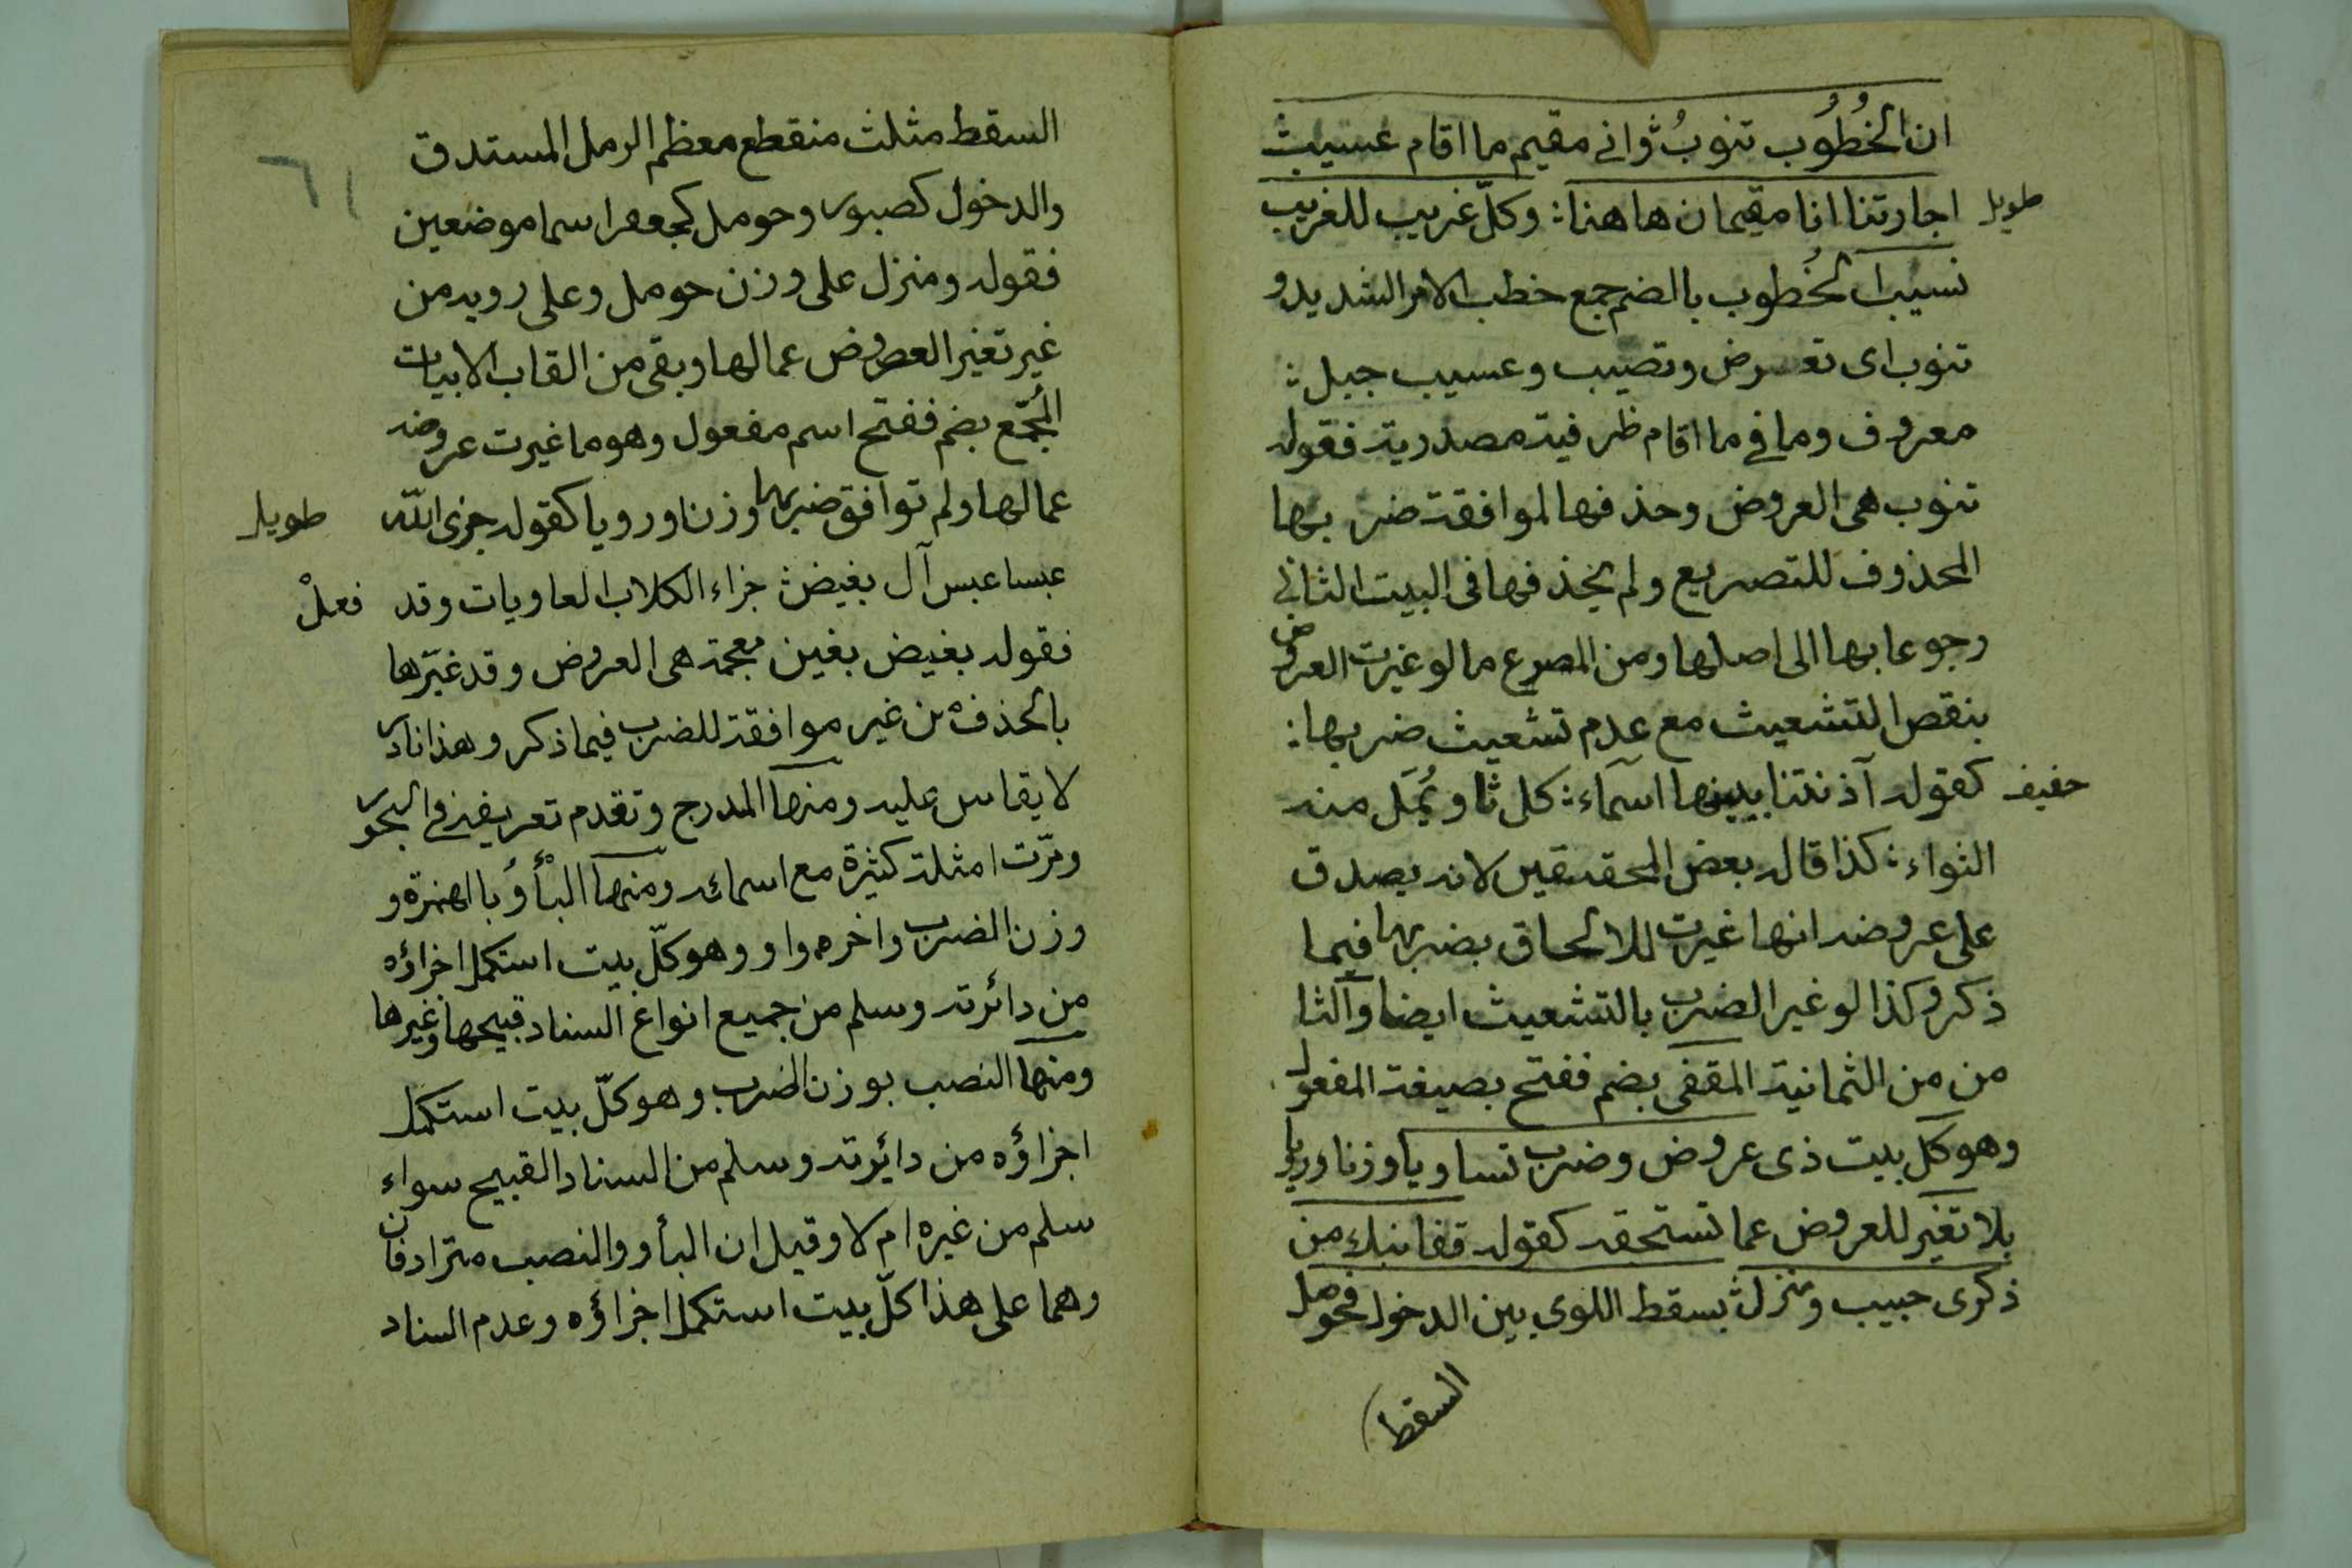 ان الخُطُوُب تنوبُ وانى مقيم ما اقام عسيب
طويل اجارتنا انا مقيمان هاهنا: وكلّ غريب للغريب
نسيب الخُطوب بالضم جمع خطب الامر الشديد و
تنوب اى تعرض وتصيب وعسيب جبل:
معروف وما فى ما اقام ظرفية مصدرية فقوله
تنوب هى العروض وحذفها لموافقة ضربها
المحذوف للتصريع ولم يحذفها فى البيت الثانى
رجوعا بها الى اصلها ومن المصرع ما لو غيرت العروض
بنقص التشعيث مع عدم تشعيث ضربها:
خفيف كقوله آذنتنا ببينها اسماء: كل ثاو يُمَل منه
الثواء: كذا قاله بعض المحققين لانه يصدق
على عروضه انها غيرت للالحاق بضربها فيما
ذكر وكذا لو غير الضرب بالتشعيث ايضا والثا
من من الثمانية المقفى بضم ففتح بصيغة المفعول
وهو كل بيت ذى عروض وضرب تساويا وزنا ورويا
بلا تغير للعروض عما تستحقه كقوله قفا نبك من
ذكرى حبيب ومنزل: بسقط اللوى بين الدخول فحومل
السقط
٦١
السقط مثلث منقطع معظم الرمل المستدق
والدخول كصبور وحومل كجعفر اسما موضعين
فقوله ومنزل على وزن حومل وعلى رويه من
غير تغير العروض عما لها وبقى من القاب الابيات
المُجمّع بضم ففتح اسم مفعول وهو ما غيرت عروضه
عما لها ولم توافق ضربها وزنا ورويا كقوله جزى الله طويل
عبسا عبس آل بغيض: جزاء الكلاب العاويات وقد فعلْ
فقوله بغيض بغين معجمة هى العروض وقد غيّرها
بالحذف من غير موافقة للضرب فيما ذكر وهذا نادر
لا يقاس عليه ومنها المدرج وتقدم تعريفه فى البحور
ومرّت امثلة كثيرة مع اسمائه ومنها البأْوُ بالهمزة و
وزن الضرب واخره واو وهو كلّ بيت استكمل اجزاؤه
من دائرته وسلم من جميع انواع السناد قبيحها وغيرها
ومنها النصب بوزن الضرب وهو كلّ بيت استكمل
اجزاؤه من دائرته وسلم من السناد القبيح سواء
سلم من غيره ام لا وقيل ان البأو والنصب مترادفان
وهما على هذا كلّ بيت استكمل اجزاؤه وعدم السناد